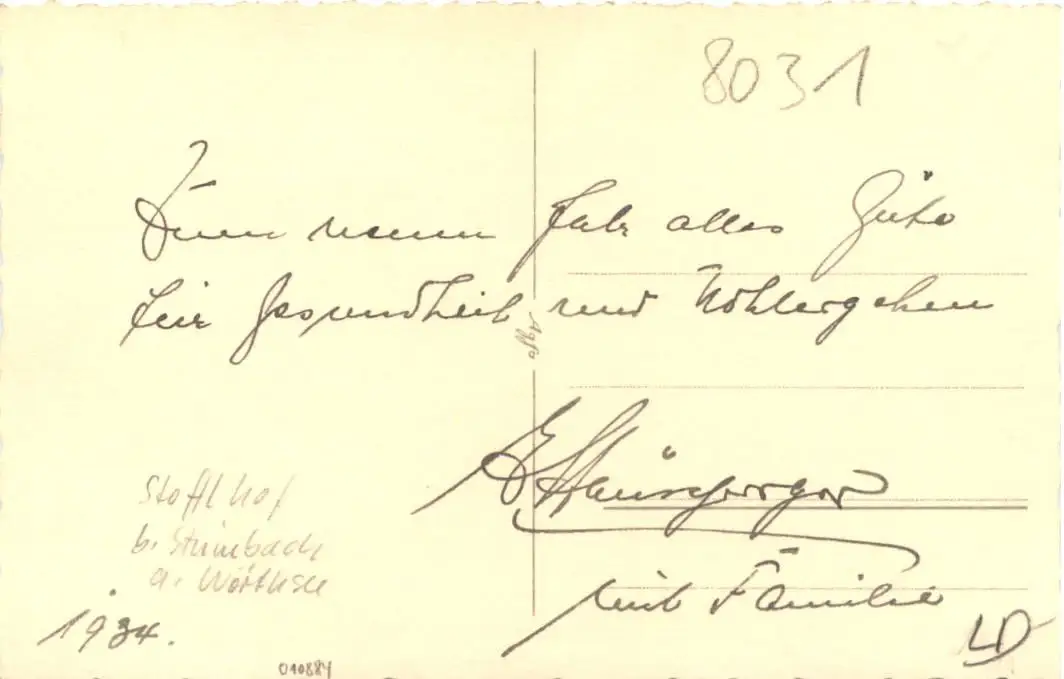 8031
Zum neuen Jahr alles Gute
für Gesundheit und Wohlergehen
Agfa
mit Familie
Stofflhof
b. Steinbach
a. Wörthsee
1934.
010884
LD